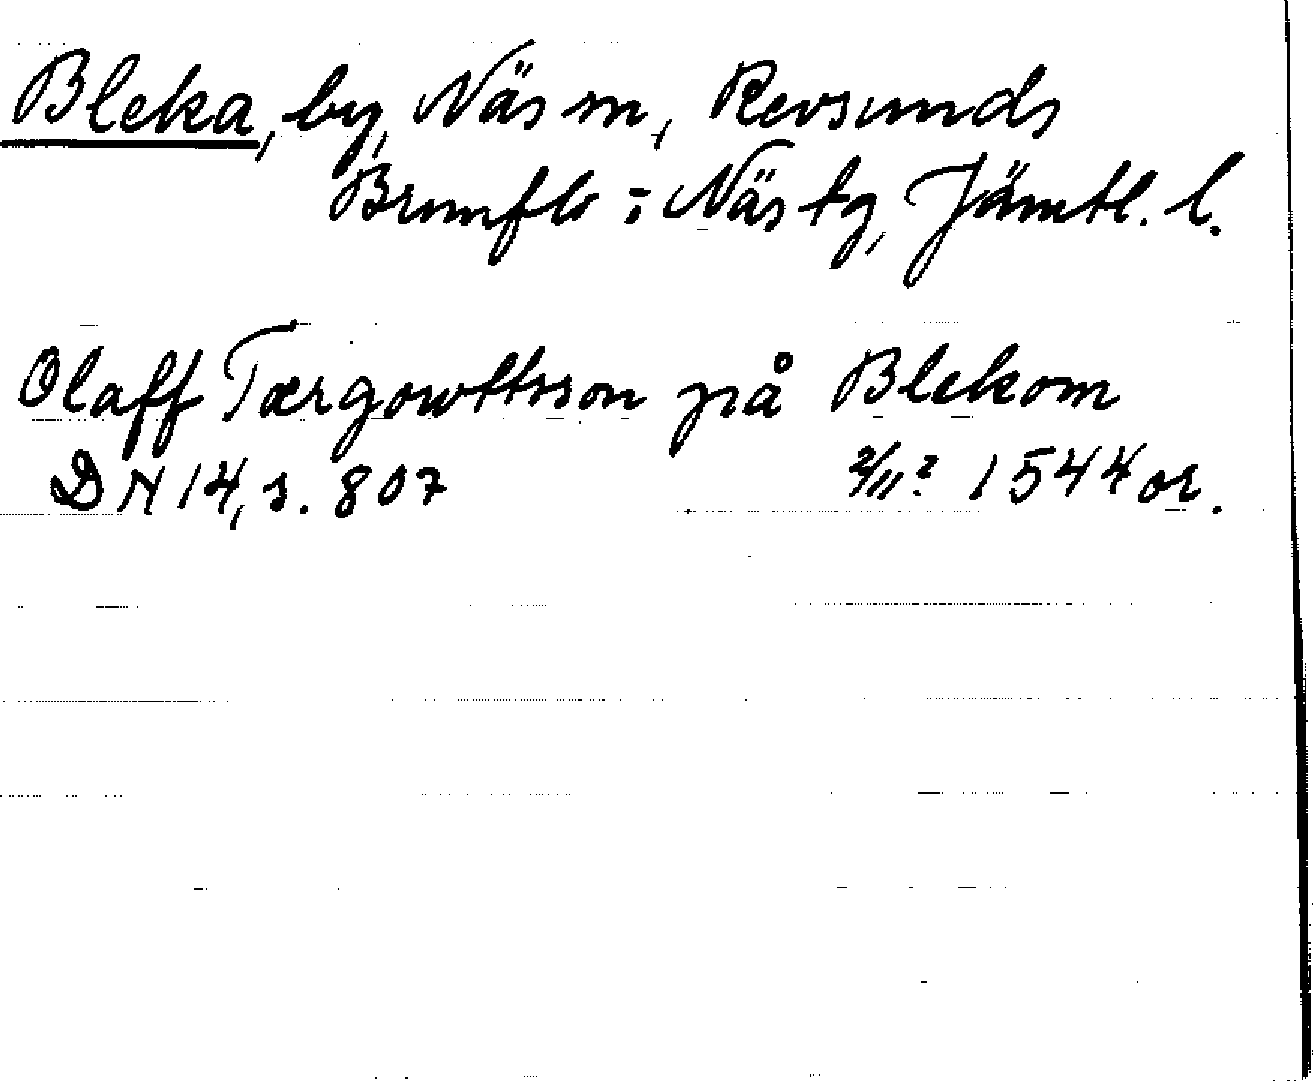 Bleka, by, Näs sn, Revsunds
Brunflo i Näs tg, Jämtl. l.
Olaff Tærgowttsson på Blekom
DN 14, s. 807 2/11? 1544 or.